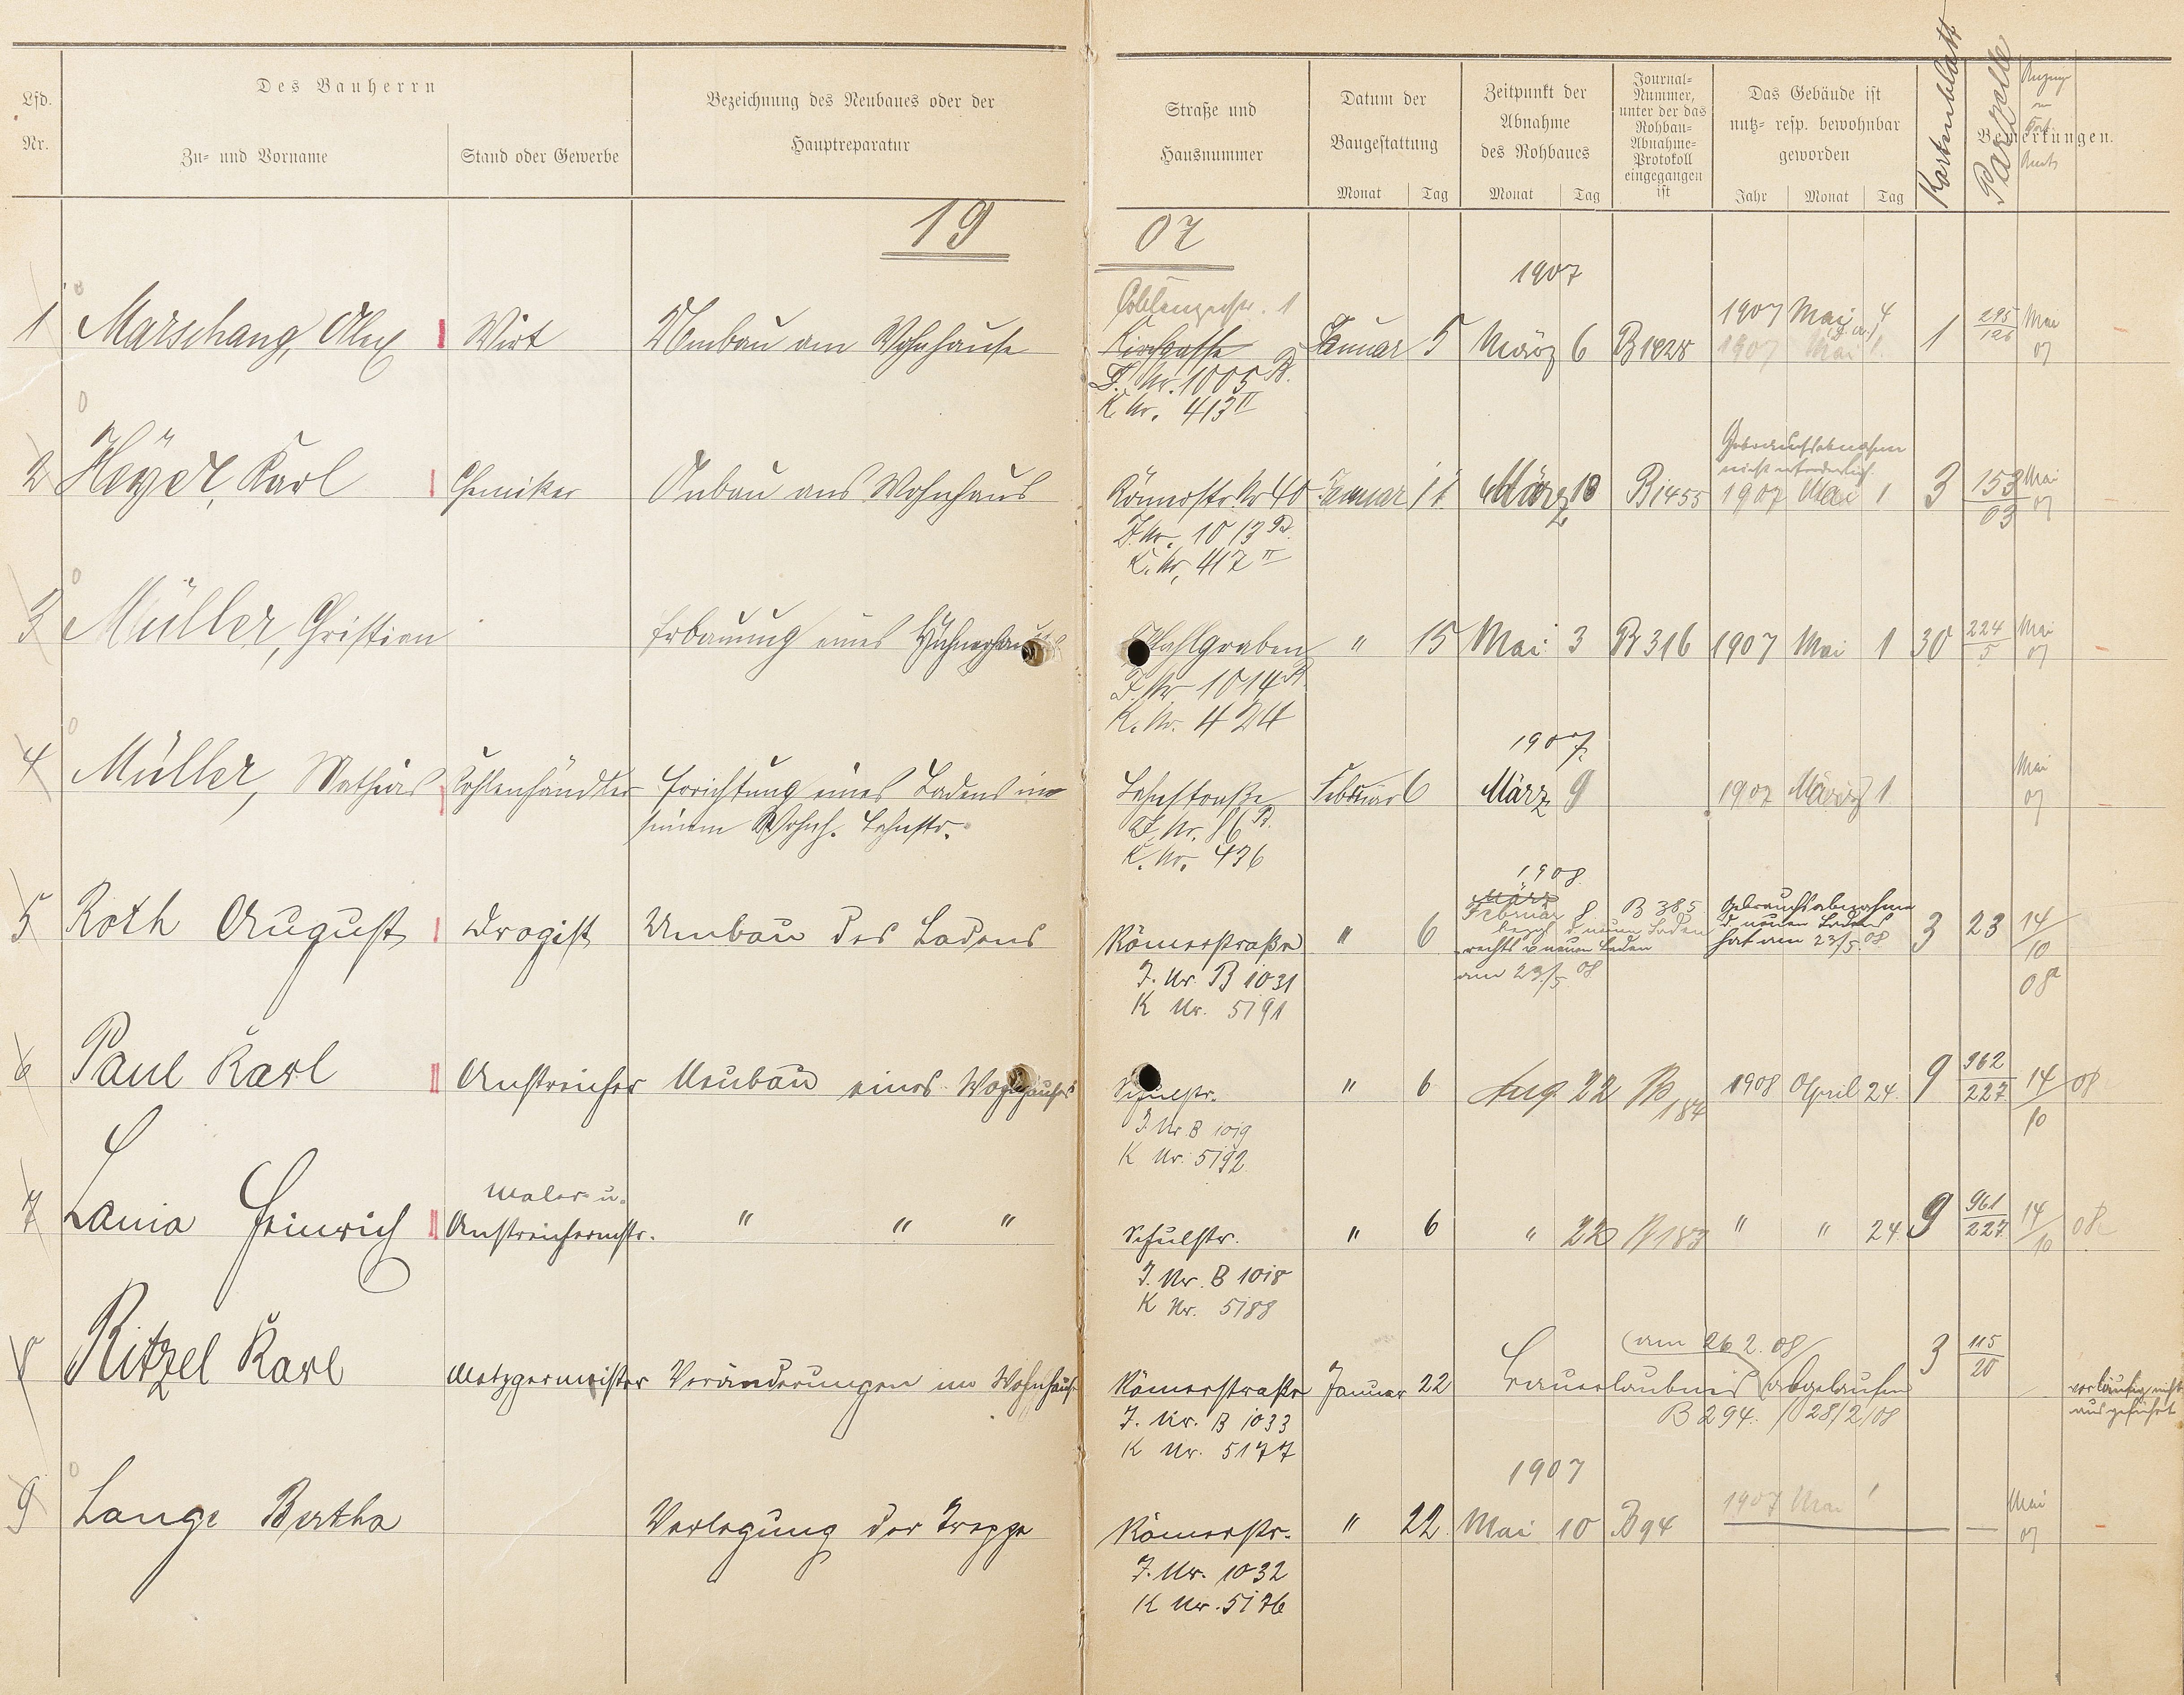 Lfd. Nr.
Des Bauherrn
Zu- und Vorname
Stand oder Gewerbe
Bezeichnung des Neubaues oder der Hauptreparatur
Straße und Hausnummer
Datum der Baugestattung
Monat Tag
Zeitpunkt der Abnahme des Rohbaues
Monat Tag
Journal-Nummer, unter der das Rohbau-Abnahme-Protokoll eingegangen ist
Das Gebäude ist nutz- resp. bewohnbar geworden
Jahr Monat Tag
Kartenblatt
Parzelle
Bemerkungen.
19 07
1907
Coblenzerstr. 1
1 Marschang, Alex Wirt Umbau am Wohnhause Kirchgasse Januar 5 März 6 B 1428 1907 Mai 4 1 295/126 Mai 07
1907 Mai 1
J. Nr. 1005 B.
K. Nr. 413 II
Gebrauchsabnahme
nicht erforderlich.
2 Heyer, Karl Chemiker Anbau ans Wohnhaus Römerstr. Nr 40 Januar 11 März 18 B 1455 1907 Mai 1 3 153/03 Mai 07
J. Nr. 1013 B.
K. Nr. 417 II
3 Müller, Christian Erbauung eines Pfahlgraben " 15 Mai 3 B 316 1907 Mai 1 30 224/5 Mai 07
J. Nr 1014 B.
K. Nr. 424
1907.
4 Müller, Mathias Kohlenhändler Errichtung eines Ladens im Lahnstraße Februar 6 März 9 1907 März 1 Mai 07
seinem Wohnh. Lahnstr.
J. Nr. 86 B.
K. Nr. 436
1908
März
5 Roth August Drogist Umbau des Ladens Römerstraße " 6 Februar 8 B 385 Gebrauchsabnahme 3 23 14/10 08
bezgl. d. neuen Laden d. neuen Ladens
rechts d. neuen Laden hat am 23/5. 08
am 23/5. 08
J. Nr. B 1031
K Nr. 5191
6 Paul Karl Anstreicher Neubau eines Wohnhauses Schulstr. " 6 Aug 22 B 184 1908 April 24. 9 962/227 14/10 08
J. Nr. B 1019
K Nr. 5192
Maler- u.
7 Lania Heinrich Anstreichermstr. " " " Schulstr. " 6 " 22 B 183 " " 24 9 961/227 14/10 08
J. Nr. B 1018
K Nr. 5188
am 26 2. 08
8 Ritzel Karl Metzgermeister Veränderungen im Wohnhause Römerstraße Januar 22 Bauerlaubnis abgelaufen 3 115/20 vorläufig nicht
ausgeführt
B 294. 28/2/08
J. Nr. B 1033
K Nr. 5177
1907
9 Lange Bertha Verlegung der Treppe Römerstr. " 22. Mai 10 B 94 1907 Mai 1 Mai 07
J. Nr. 1032
K Nr. 5176